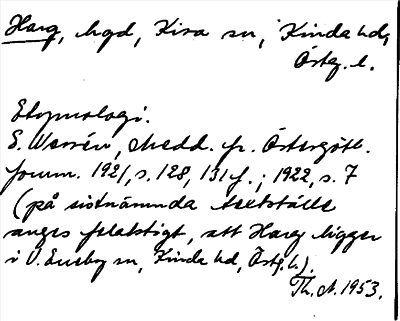 Harg, hgd, Kisa sn, Kinda hd,
Östg. l.
Etymologi.
E. Wessén, Medd. fr. Östergötl.
fornm. 1921, s. 128, 131 f.; 1922, s. 7
(på sistnämnda textställe
anges felaktigt, att Harg ligger
i V. Eneby sn, Kinda hd, Östg. l.).
Th. A. 1953.